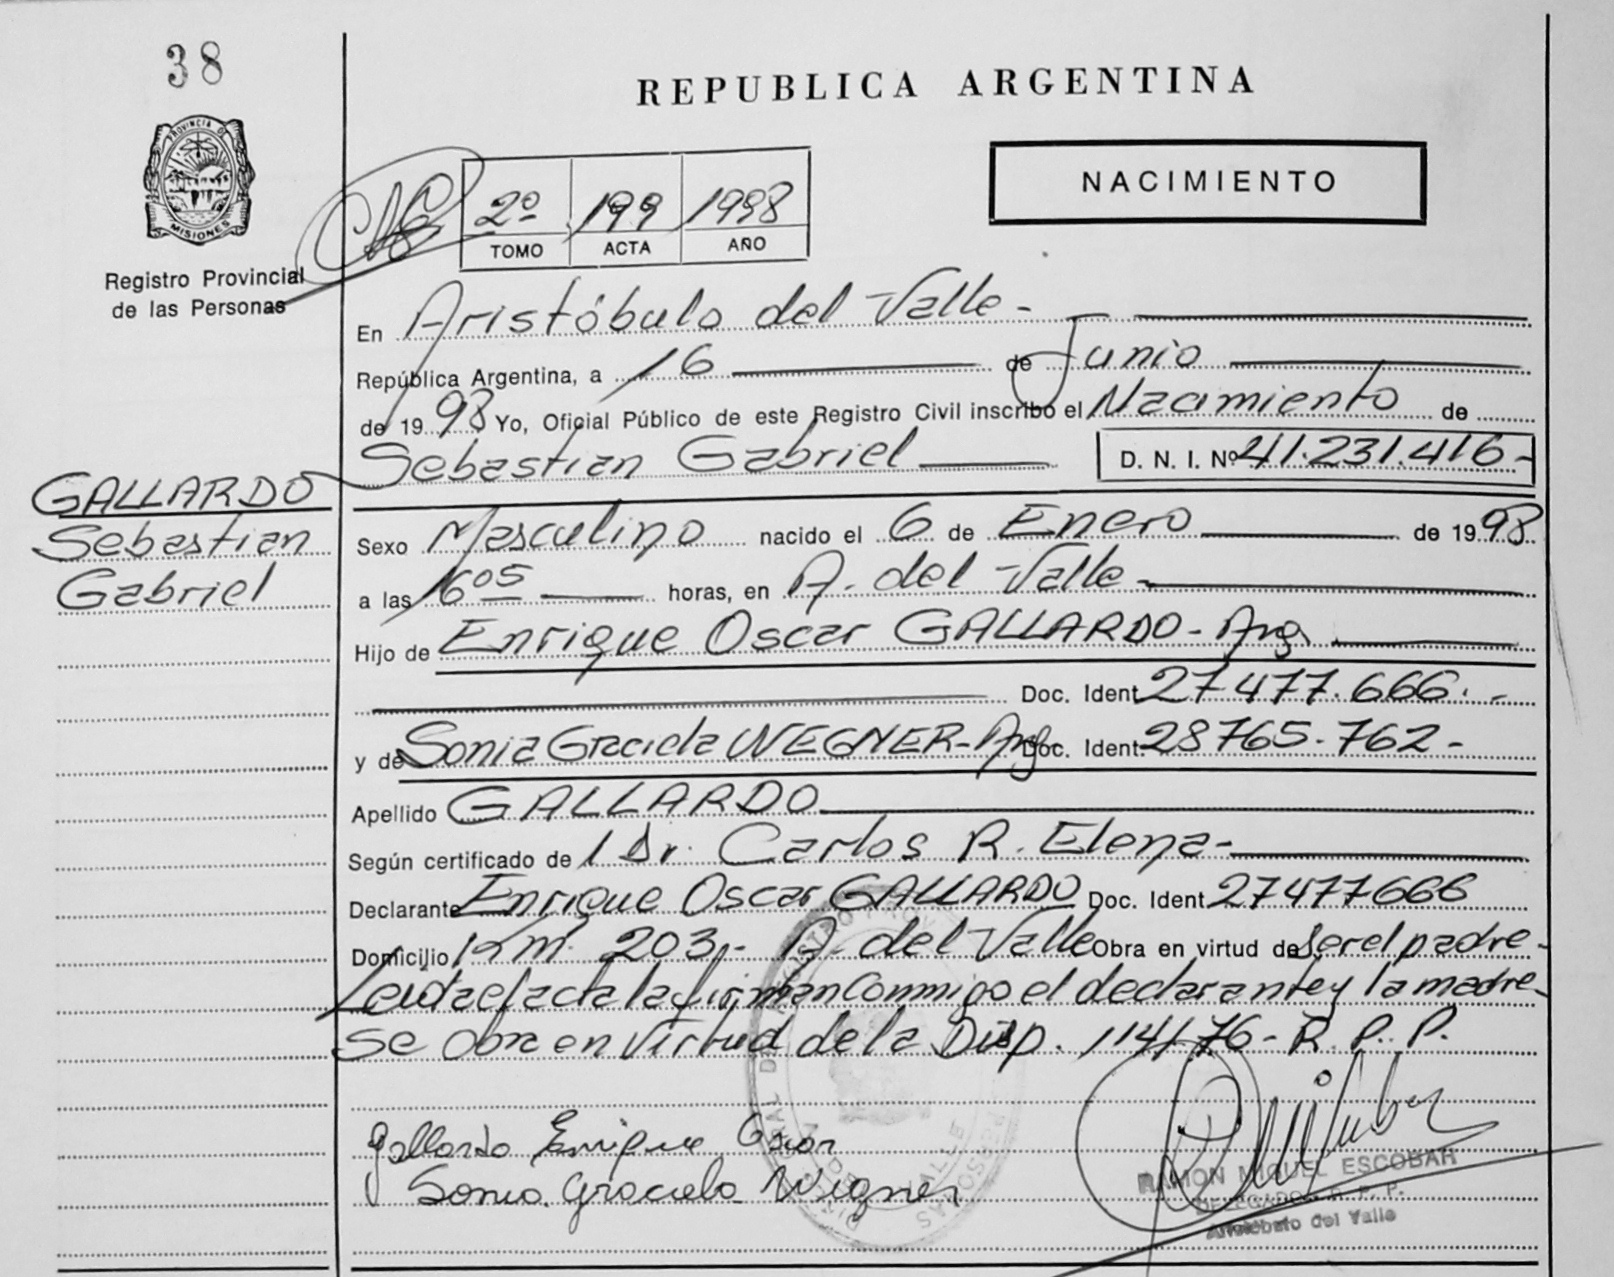 38
REPUBLICA ARGENTINA
PROVINCIA DE
MISIONES
Registro Provincial
de las Personas
NACIMIENTO
2º 199 1998
TOMO ACTA AÑO
En Aristóbulo del Valle -
República Argentina, a 16 de Junio
de 1998 Yo, Oficial Público de este Registro Civil inscribo el Nacimiento de
Sebastian Gabriel D. N. I. Nº 41.231.416-
GALLARDO
Sebastian
Gabriel
Sexo Masculino nacido el 6 de Enero de 1998
a las 16 05 horas, en A. del Valle -
Hijo de Enrique Oscar GALLARDO - Arg.
Doc. Ident 27477.666. -
y de Sonia Graciela WEGNER - Arg Doc. Ident. 28765.762 -
Apellido GALLARDO
Según certificado de 1 Dr. Carlos R. Elena -
Declarante Enrique Oscar GALLARDO Doc. Ident 27477666
Domicilio Km. 203,- A. del Valle Obra en virtud de ser el padre -
Leida el acta la firman conmigo el declarante y la madre -
se obra en virtud de la Disp. 114/76 - R. P. P.
Gallardo Enrique Oscar
Sonia Graciela Wegner
RAMON MIGUEL ESCOBAR
DELEGADO R. P. P.
Aristóbulo del Valle